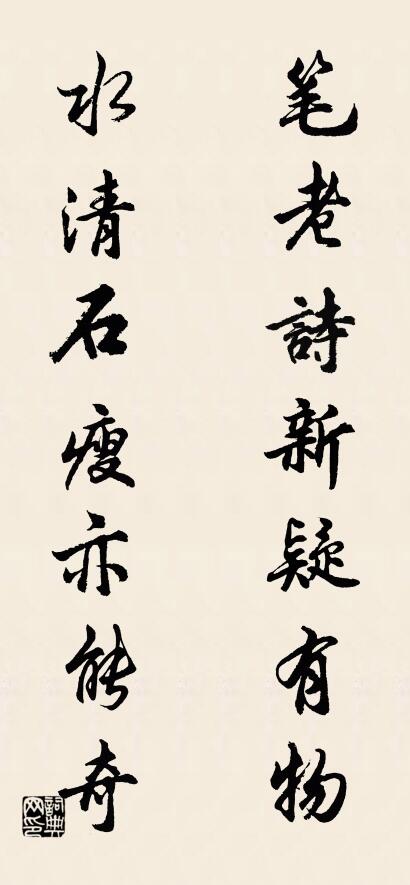 笔老詩新疑有物
水清石瘦亦能奇
詞典
网印